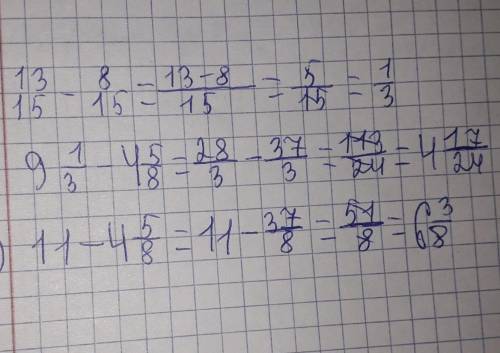 13/15 - 8/15 = 13-8/15 = 5/15 = 1/3
9 1/3 - 4 5/8 = 28/3 - 37/3 = 113/24 = 4 17/24
11 - 4 5/8 = 11 - 37/8 = 51/8 = 6 3/8